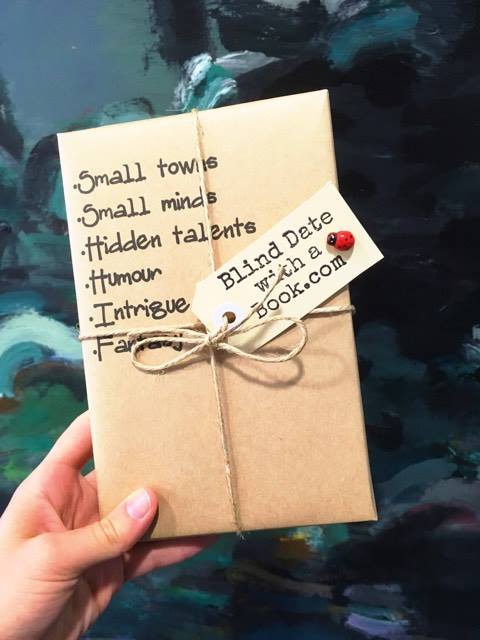 ·Small towns
·Small minds
·Hidden talents
·Humour
·Intrigue
·Fantasy
Blind Date
with a
Book.com